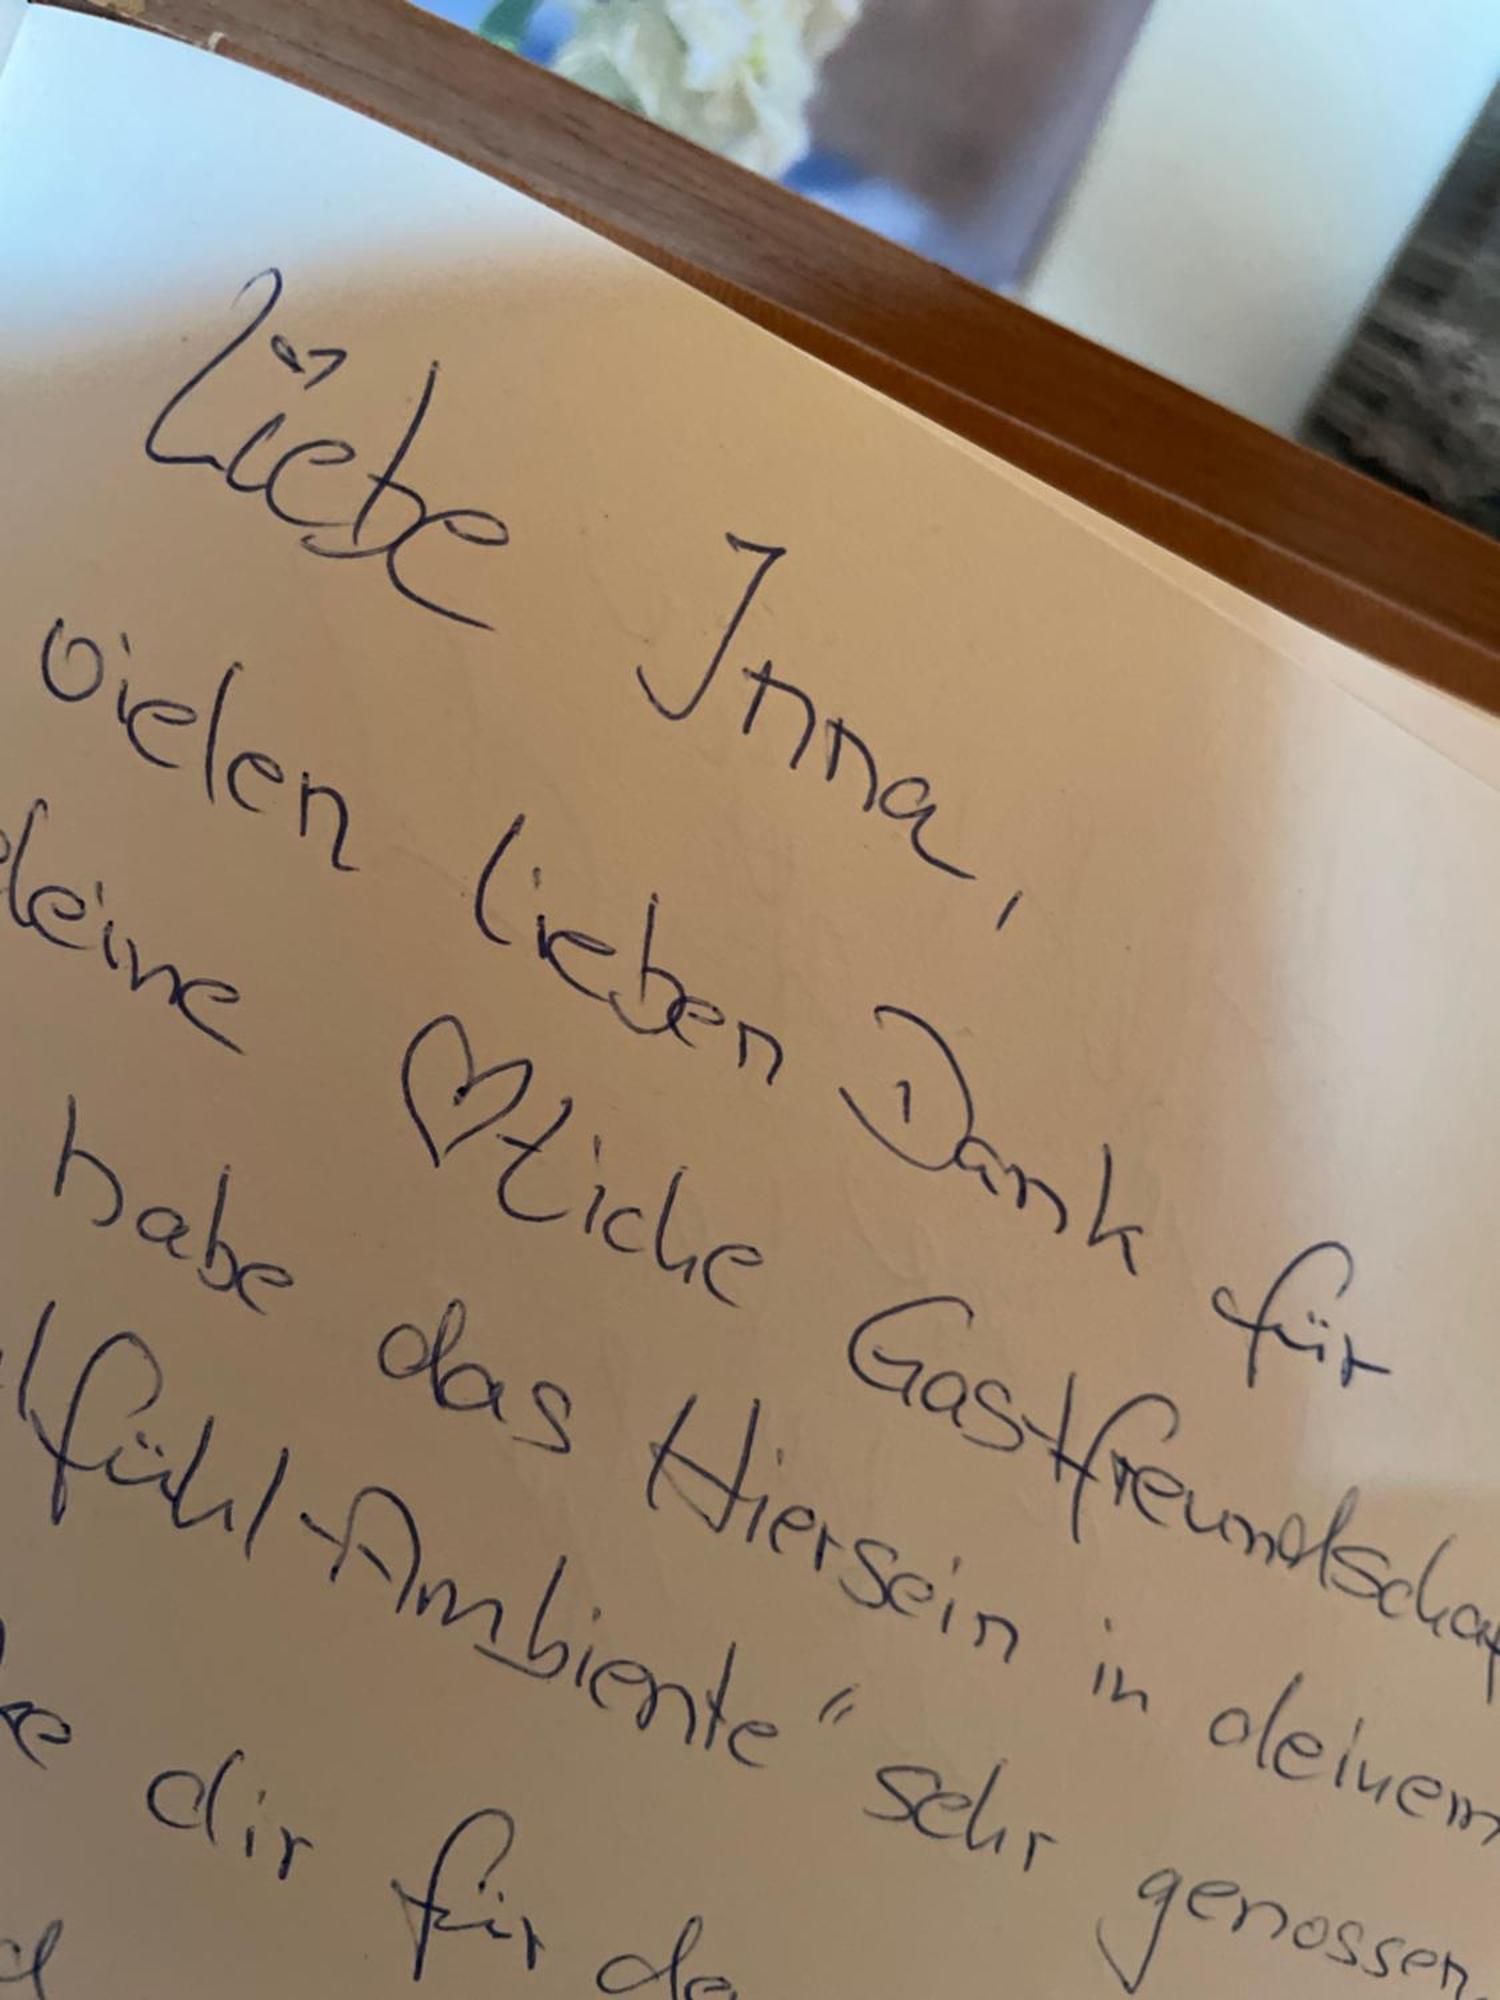 Liebe Inna,
vielen lieben Dank für
deine ♡liche Gastfreundschaf
habe das Hiersein in deinem
lfühl-Ambiente“ sehr genossen.
dir für de